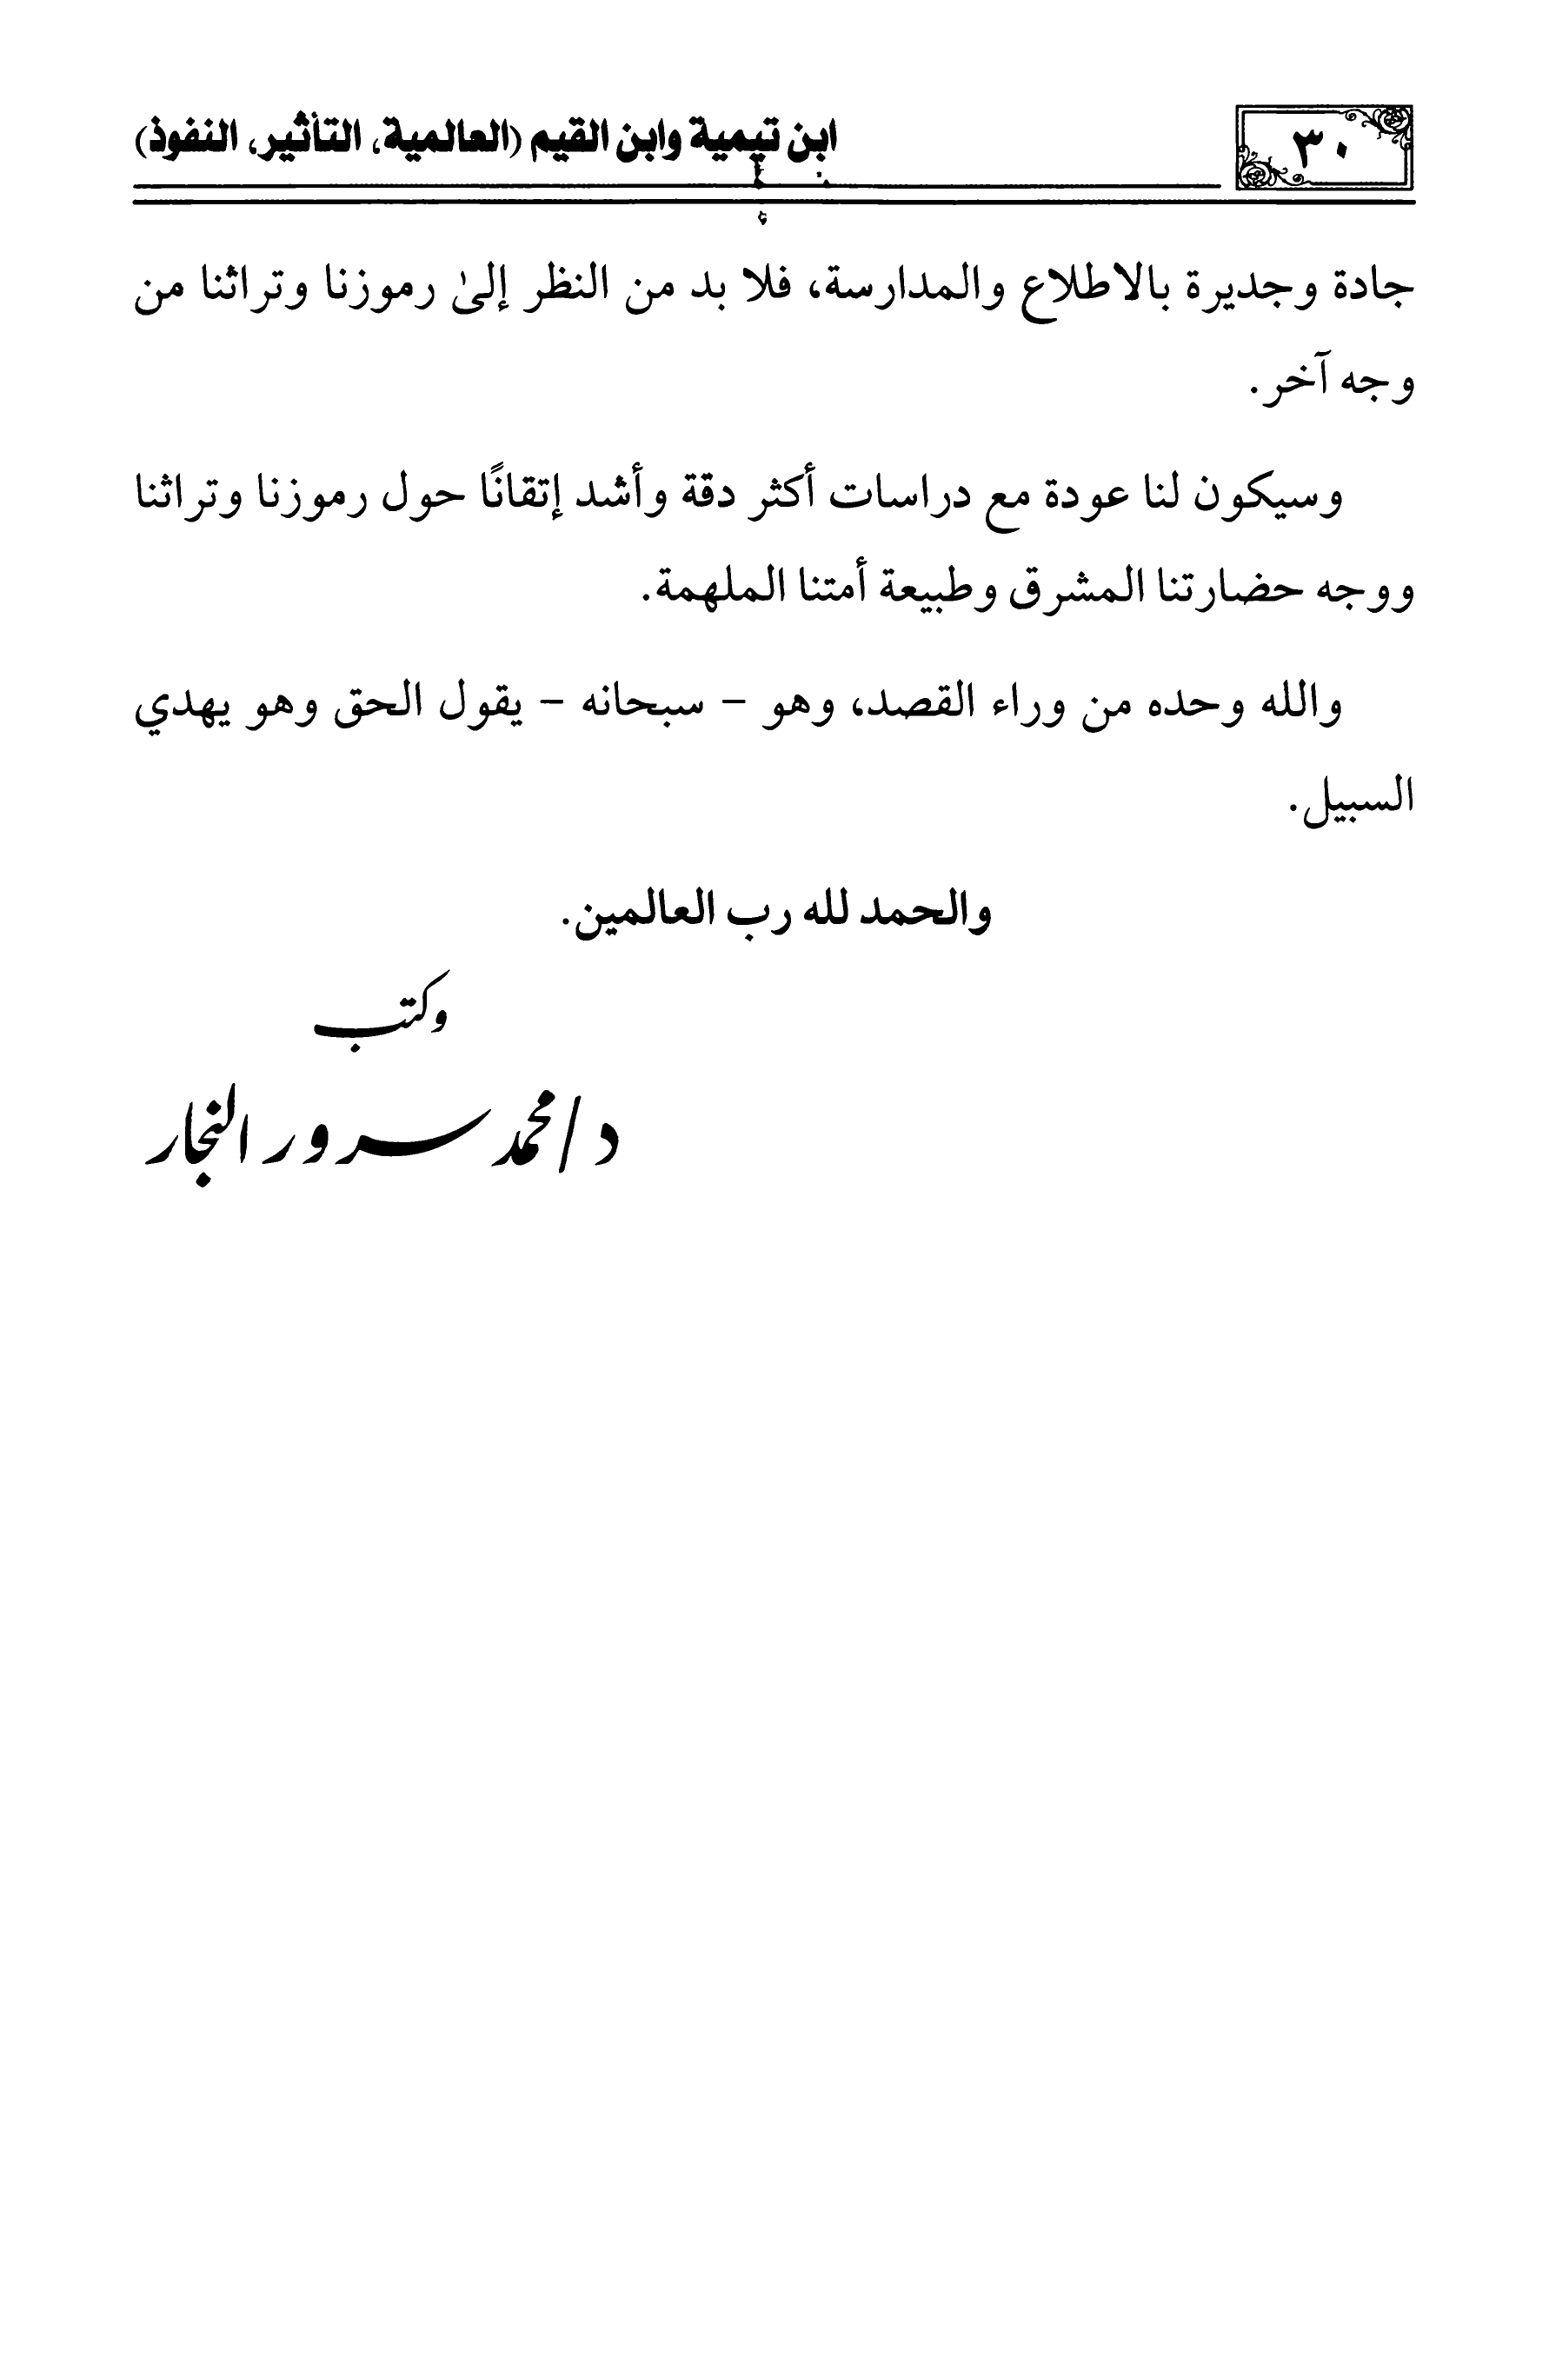 ٣٠
ابن تيمية وابن القيم (العالمية، التأثير، النفوذ)
جادة وجديرة بالاطلاع والمدارسة، فلا بد من النظر إلىٰ رموزنا وتراثنا من
وجه آخر.
وسيكون لنا عودة مع دراسات أكثر دقة وأشد إتقانًا حول رموزنا وتراثنا
ووجه حضارتنا المشرق وطبيعة أمتنا الملهمة.
والله وحده من وراء القصد، وهو – سبحانه – يقول الحق وهو يهدي
السبيل.
والحمد لله رب العالمين.
وكتب
د/محمد سرور النجار